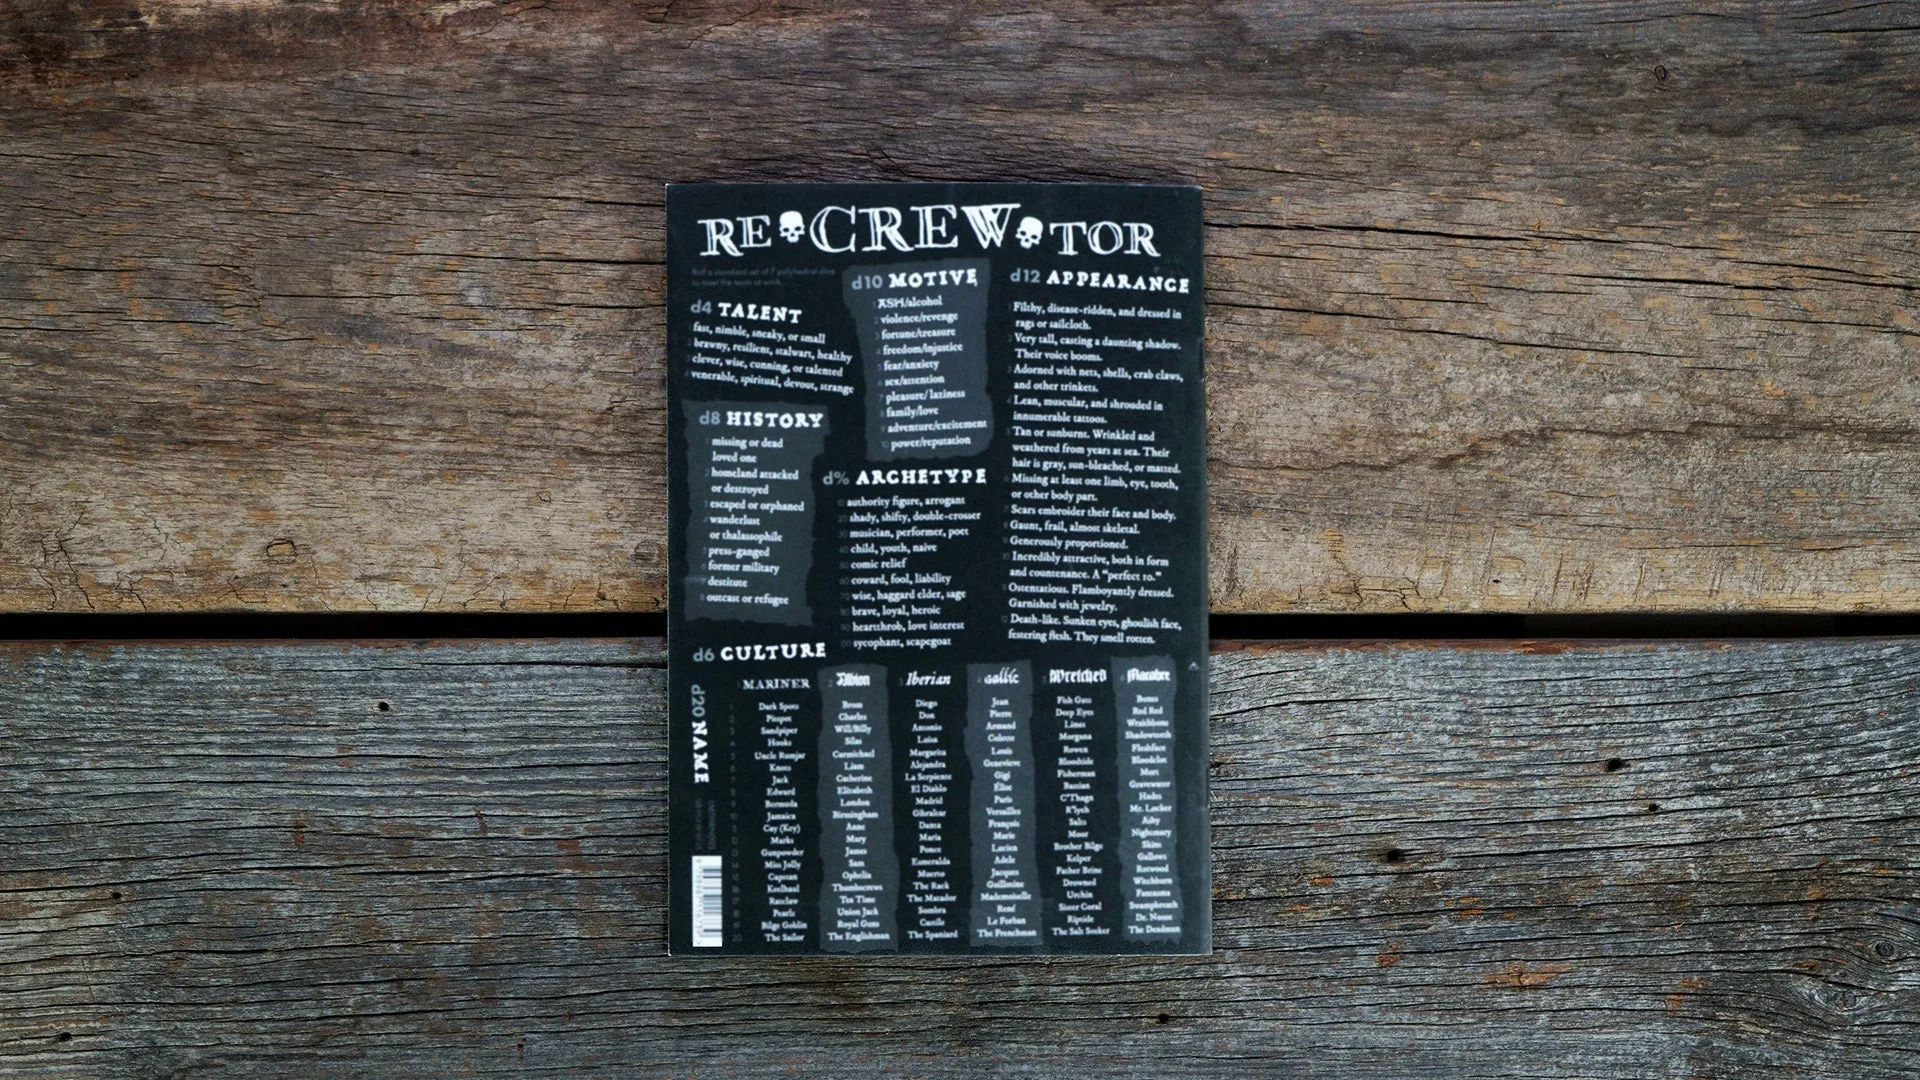 RE CREW TOR
Roll a standard set of 7 polyhedral dice
to meet the team at work.
d4 TALENT
fast, nimble, sneaky, or small
brawny, resilient, stalwart, healthy
clever, wise, cunning, or talented
venerable, spiritual, devout, strange
d8 HISTORY
1 missing or dead
loved one
2 homeland attacked
or destroyed
3 escaped or orphaned
4 wanderlust
or thalassophile
5 press-ganged
6 former military
7 destitute
8 outcast or refugee
d10 MOTIVE
1 ASH/alcohol
2 violence/revenge
3 fortune/treasure
4 freedom/injustice
5 fear/anxiety
6 sex/attention
7 pleasure/ laziness
8 family/love
9 adventure/excitement
10 power/reputation
d% ARCHETYPE
10 authority figure, arrogant
20 shady, shifty, double-crosser
30 musician, performer, poet
40 child, youth, naive
50 comic relief
60 coward, fool, liability
70 wise, haggard elder, sage
80 brave, loyal, heroic
90 heartthrob, love interest
00 sycophant, scapegoat
d12 APPEARANCE
1 Filthy, disease-ridden, and dressed in
rags or sailcloth.
2 Very tall, casting a daunting shadow.
Their voice booms.
3 Adorned with nets, shells, crab claws,
and other trinkets.
4 Lean, muscular, and shrouded in
innumerable tattoos.
5 Tan or sunburnt. Wrinkled and
weathered from years at sea. Their
hair is gray, sun-bleached, or matted.
6 Missing at least one limb, eye, tooth,
or other body part.
7 Scars embroider their face and body.
8 Gaunt, frail, almost skeletal.
9 Generously proportioned.
10 Incredibly attractive, both in form
and countenance. A “perfect 10.”
11 Ostentatious. Flamboyantly dressed.
Garnished with jewelry.
12 Death-like. Sunken eyes, ghoulish face,
festering flesh. They smell rotten.
d6 CULTURE
d20 NAME
1 MARINER
Dark Spots
Pisspot
Sandpiper
Hooks
Uncle Rumjar
Knots
Jack
Edward
Bermuda
Jamaica
Cay (Key)
Marks
Gunpowder
Miss Jolly
Capstan
Keelhaul
Ratclaw
Pearls
Bilge Goblin
The Sailor
2 Albion
Brom
Charles
Will/Billy
Silas
Carmichael
Liam
Catherine
Elizabeth
London
Birmingham
Anne
Mary
James
Sam
Ophelia
Thumbscrews
Tea Time
Union Jack
Royal Guts
The Englishman
3 Iberian
Diego
Don
Antonio
Luisa
Margarita
Alejandra
La Serpiente
El Diablo
Madrid
Gibraltar
Danta
Maria
Ponce
Esmeralda
Muerto
The Rack
The Matador
Sombra
Castile
The Spaniard
4 Gallic
Jean
Pierre
Armand
Colette
Louis
Genevieve
Gigi
Élise
Paris
Versailles
François
Marie
Lucien
Adele
Jacques
Guillotine
Mademoiselle
René
Le Forban
The Frenchman
5 Wretched
Fish Guts
Deep Eyes
Linus
Morgana
Rowen
Bloodtide
Fisherman
Bastian
C'Thagn
R'lyeh
Salts
Moor
Brother Bilge
Kelper
Father Brine
Drowned
Urchin
Sister Coral
Riptide
The Salt Seeker
6 Macabre
Bones
Red Red
Wraithbone
Shadowteeth
Fleshface
Bloodclot
Mort
Gravewater
Hades
Mr. Locker
Ashy
Nightmary
Skins
Gallows
Rotwood
Witchburn
Fantasma
Swampbreath
Dr. Noose
The Deadman